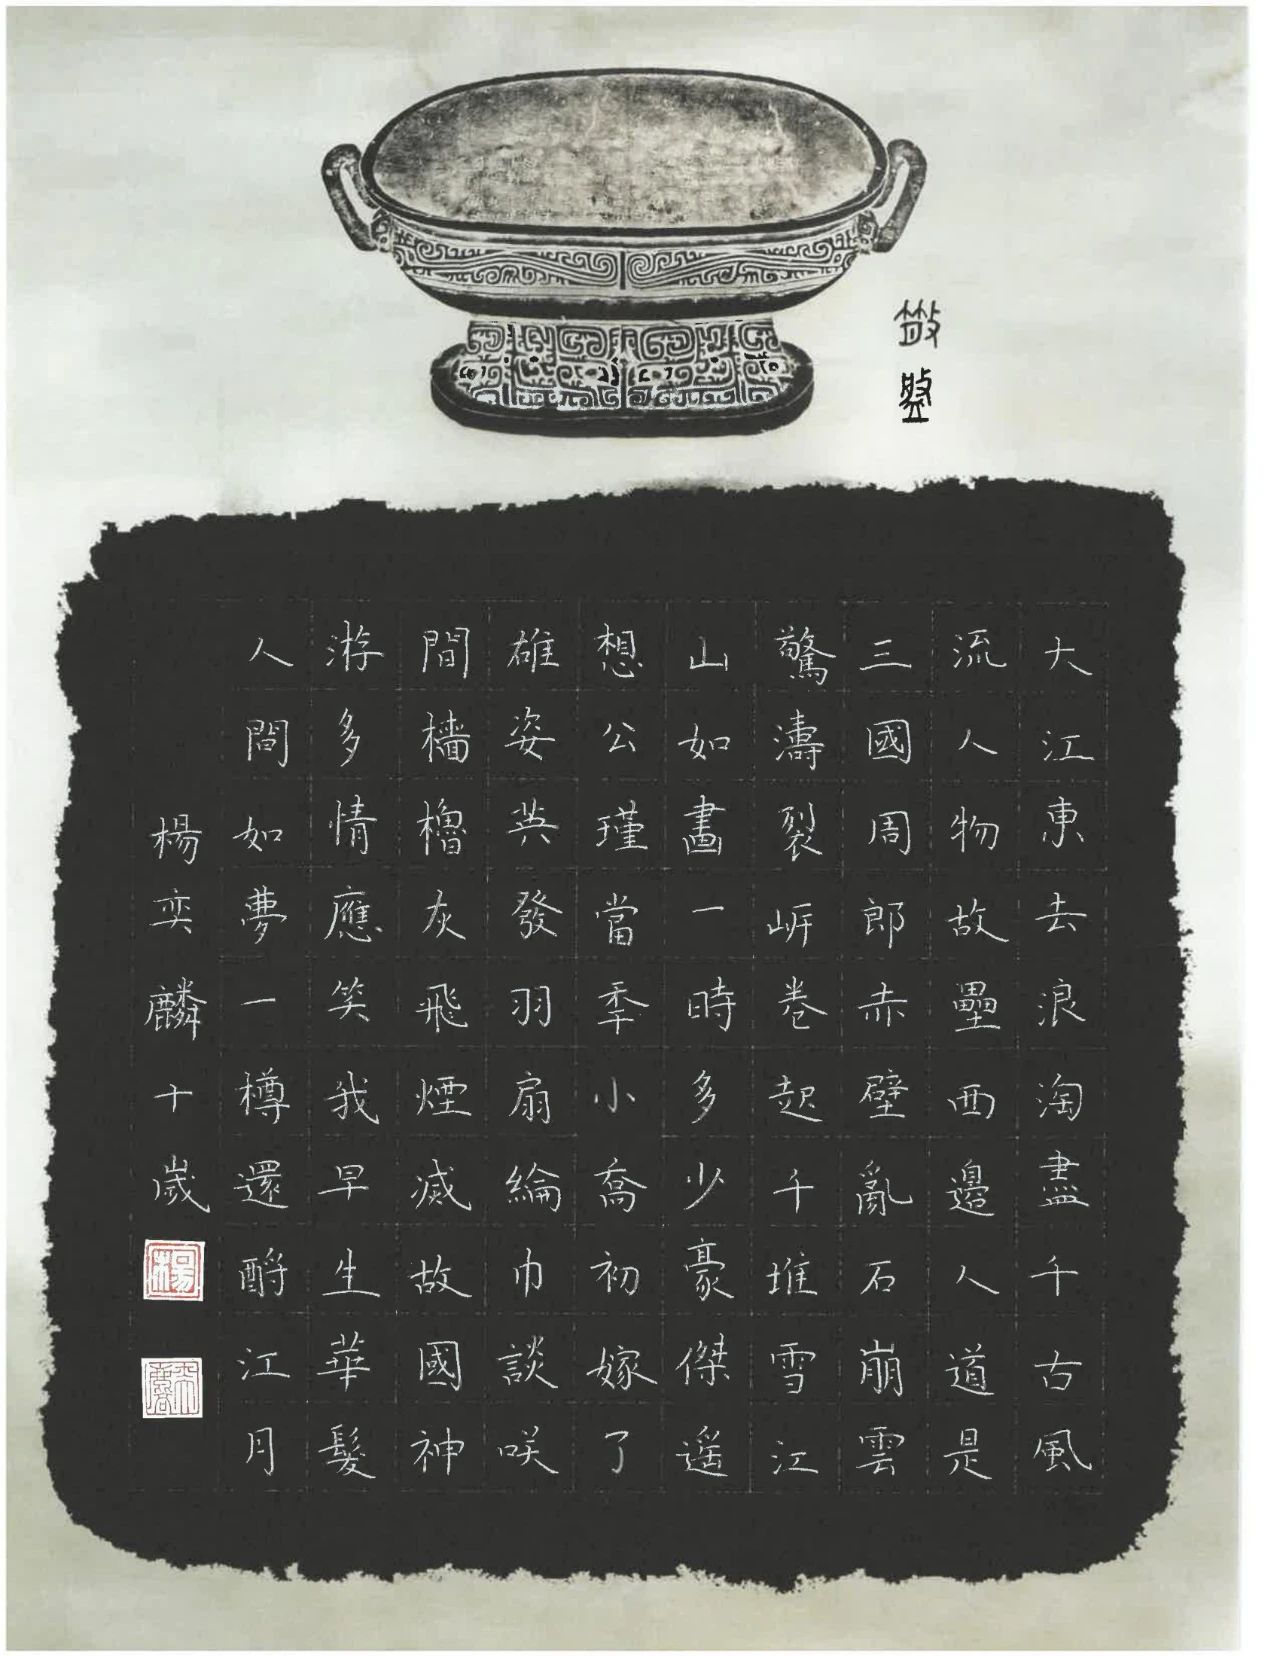 大江東去浪淘盡千古風
流人物故壘西邊人道是
三國周郎赤壁亂石崩雲
驚濤裂岍卷起千堆雪江
山如畫一時多少豪傑遥
想公瑾當秊小喬初嫁了
雄姿英發羽扇綸巾談咲
間檣櫓灰飛煙滅故國神
游多情應笑我早生華髮
人間如夢一樽還酹江月
楊奕麟十歲
楊
奕麟